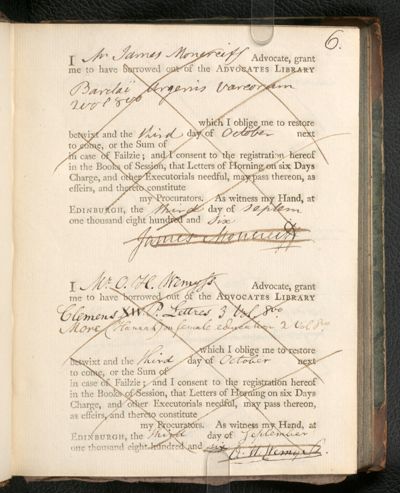 6.
I Mr James Moncreiff Advocate, grant
me to have borrowed out of the ADVOCATES LIBRARY
Barclaii Argenis variorum
2 vol 8vo
which I oblige me to restore
betwixt and the third day of October next
to come, or the Sum of
in case of Failzie; and I consent to the registration hereof
in the Books of Session, that Letters of Horning on six Days
Charge, and other Executorials needful, may pass thereon, as
effeirs, and thereto constitute
my Procurators. As witness my Hand, at
EDINBURGH, the third day of Septem
one thousand eight hundred and six
James Moncreiff
I Mr Wemyss Advocate, grant
me to have borrowed out of the ADVOCATES LIBRARY
Clemens XIV. Lettres, 3 Vol 8vo
More Hannah on female education 2 Vol 8vo
which I oblige me to restore
betwixt and the third day of October next
to come, or the Sum of
in case of Failzie; and I consent to the registration hereof
in the Books of Session, that Letters of Horning on six Days
Charge, and other Executorials needful, may pass thereon,
as effeirs, and thereto constitute
my Procurators. As witness my Hand, at
EDINBURGH, the third day of September
one thousand eight hundred and six
Wemyss